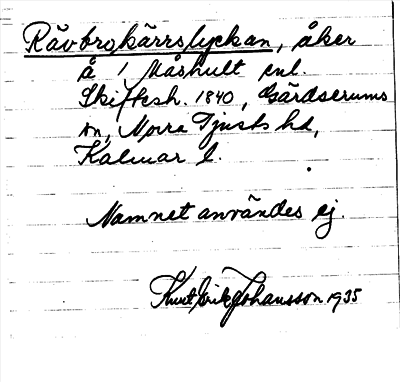 Rävbrokärrslyckan, åker
å 1 Måshult enl.
Skiftesh. 1840, Gärdserums
sn, Norra Tjusts hd,
Kalmar l.
Namnet användes ej.
Knut Erik Johansson 1935